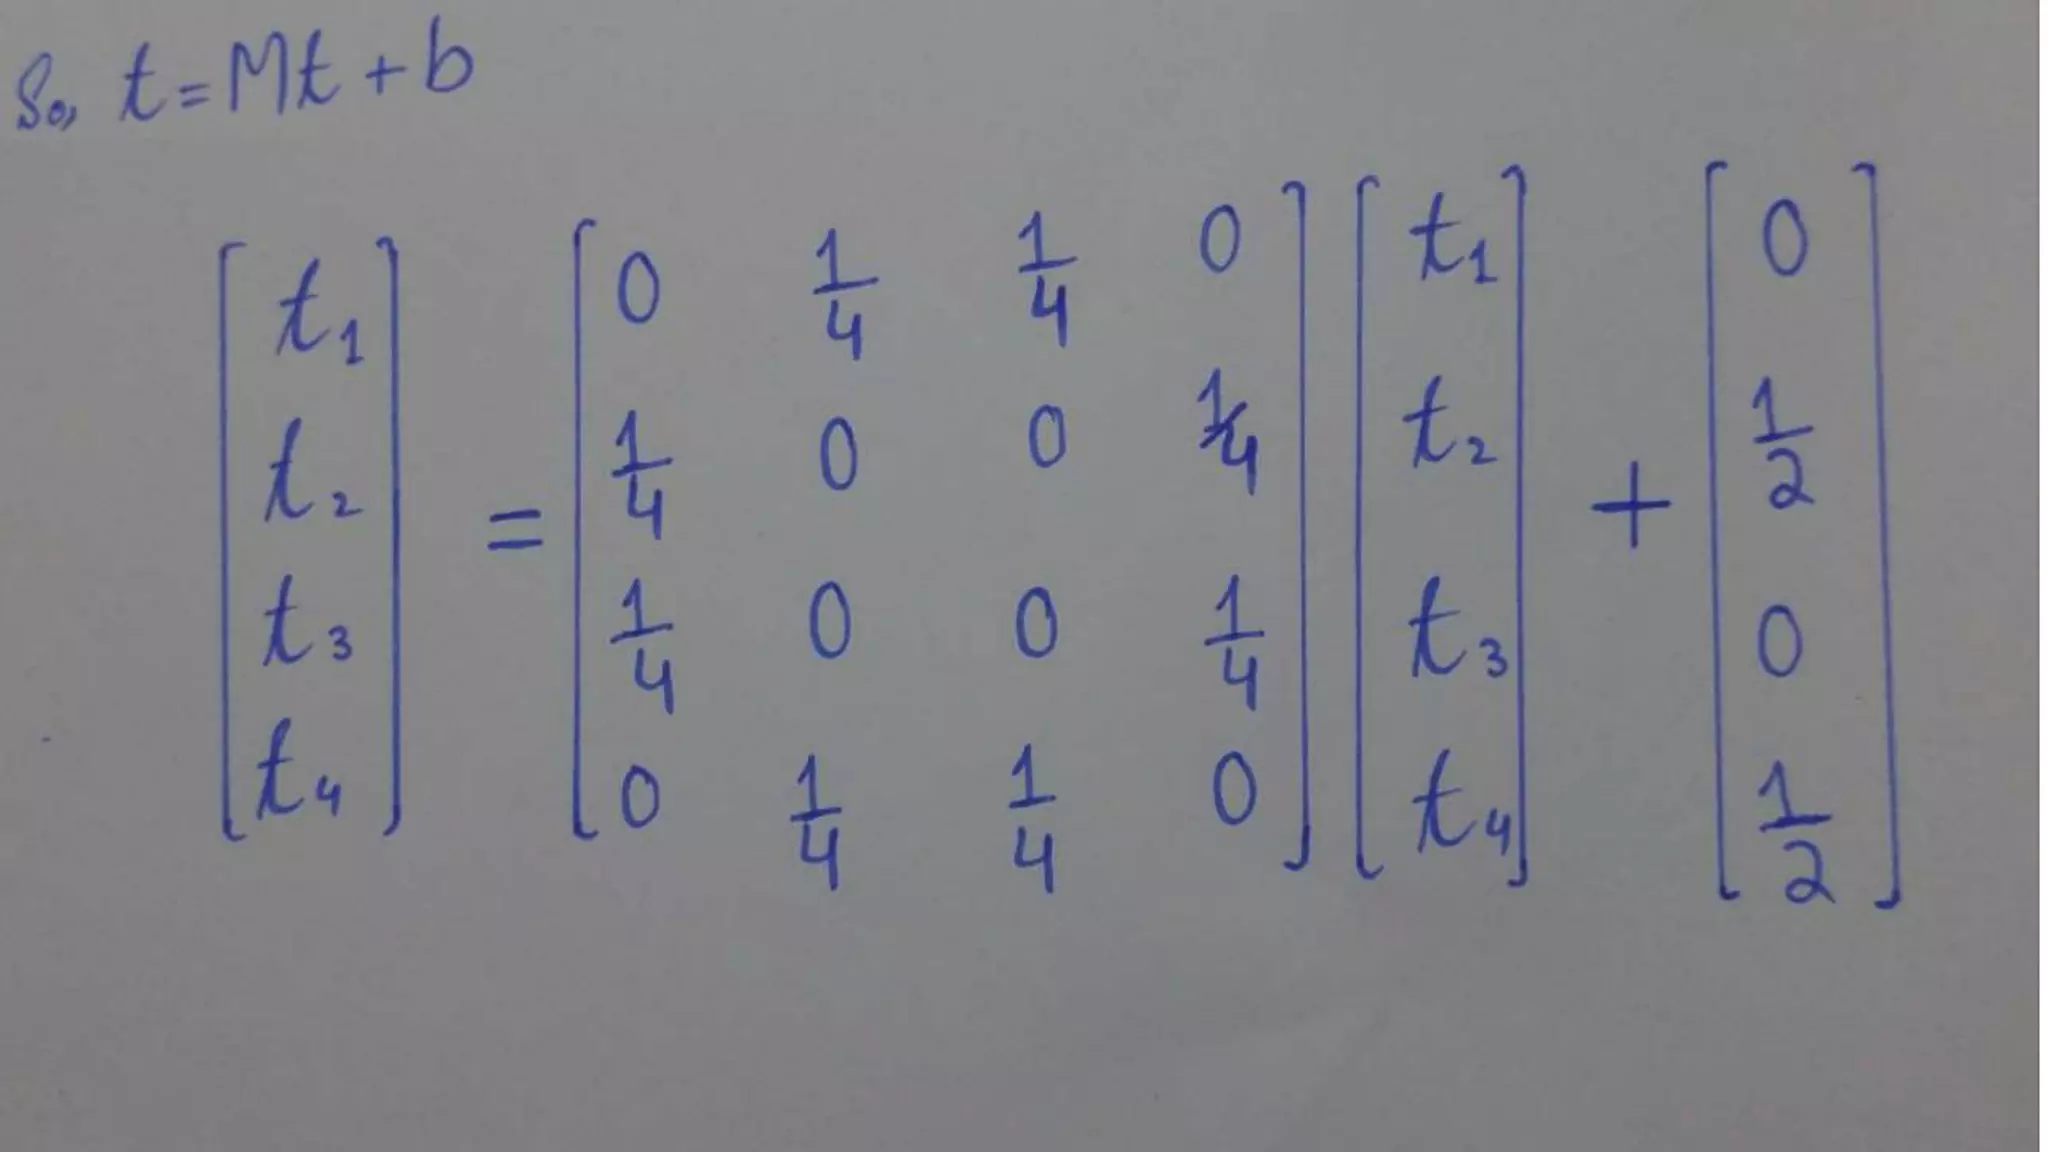 So, t = Mt + b
[t₁ t₂ t₃ t₄] = [0 1/4 1/4 0; 1/4 0 0 1/4; 1/4 0 0 1/4; 0 1/4 1/4 0] [t₁ t₂ t₃ t₄] + [0 1/2 0 1/2]